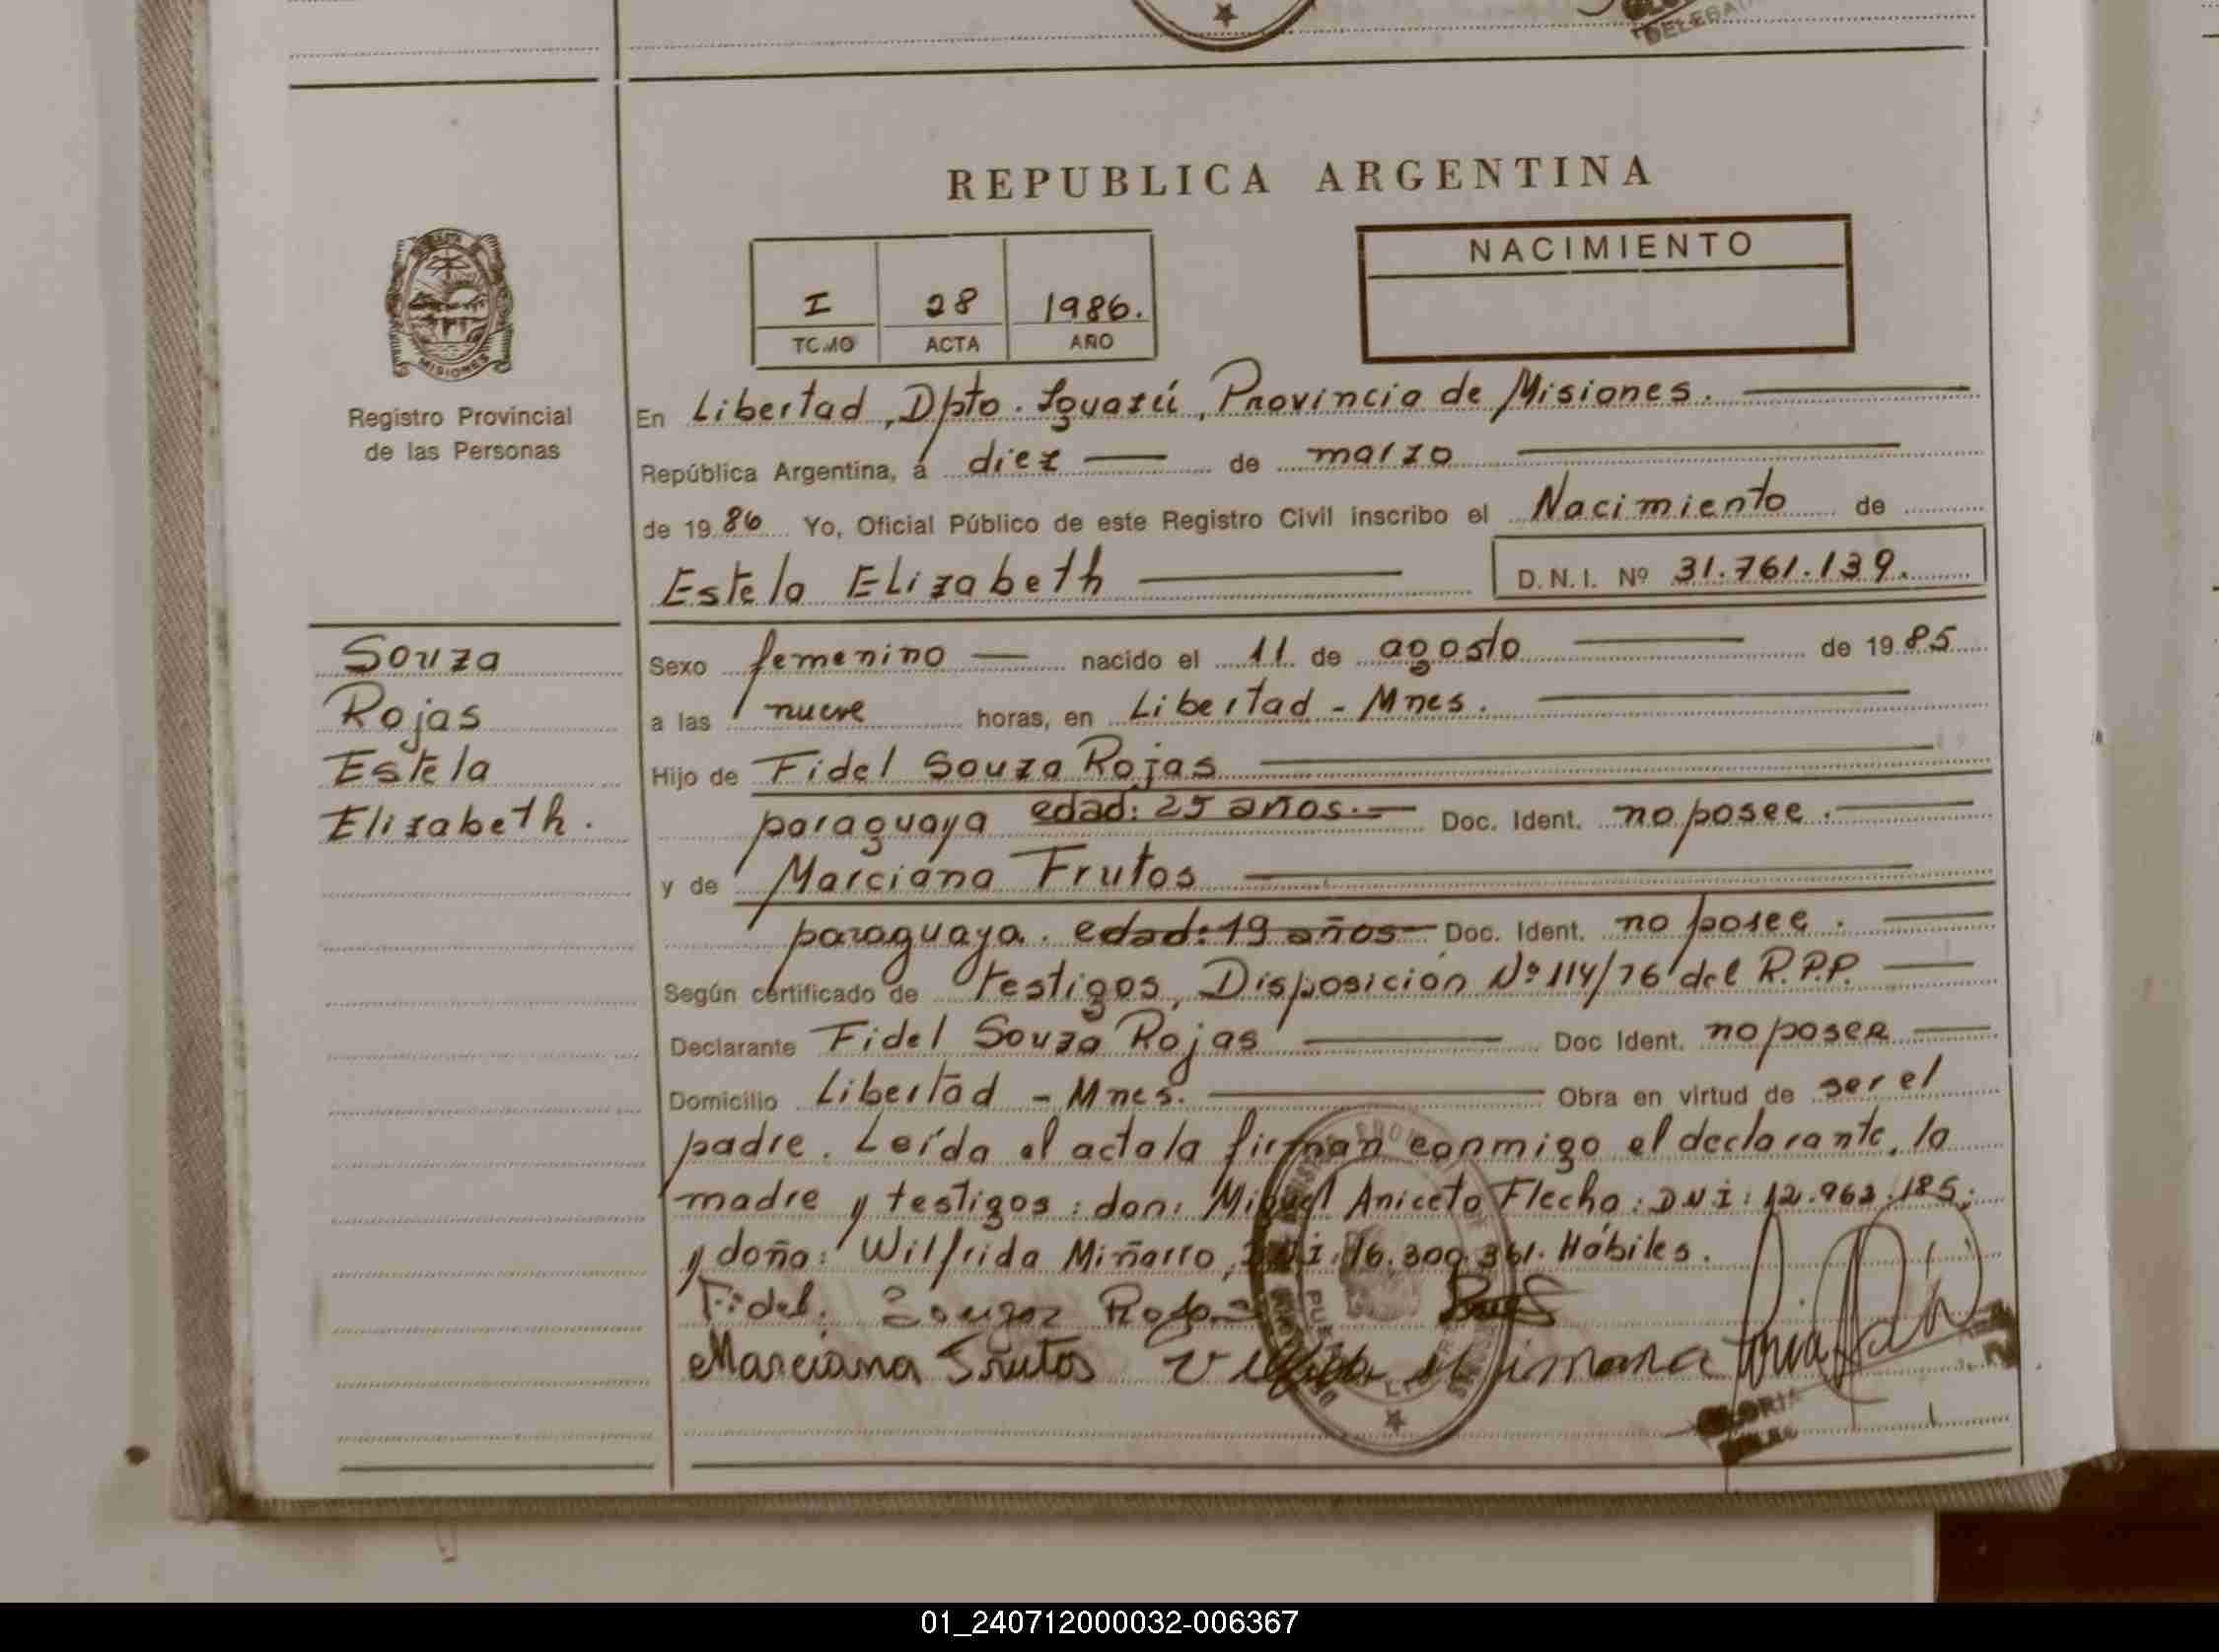 REPUBLICA ARGENTINA
NACIMIENTO
I 28 1986.
TOMO ACTA AÑO
MISIONES
Registro Provincial
de las Personas
En Libertad, Dpto. Iguazú, Provincia de Misiones.
República Argentina, á diez de marzo
de 1986 Yo, Oficial Público de este Registro Civil inscribo el Nacimiento de
Estela Elizabeth D.N.I. Nº 31.761.139.
Souza
Rojas
Estela
Elizabeth.
Sexo femenino nacido el 11 de agosto de 1985
a las nueve horas, en Libertad - Mnes.
Hijo de Fidel Souza Rojas
paraguaya edad: 25 años. Doc. Ident. no posee.
y de Marciana Frutos
paraguaya. edad: 19 años Doc. Ident. no posee.
Según certificado de testigos, Disposición Nº 114/76 del R.P.P.
Declarante Fidel Souza Rojas Doc Ident. no posee
Domicilio Libertad - Mnes. Obra en virtud de ser el
padre. Leída el acta la firman conmigo el declarante, la
madre y testigos: don: Miguel Aniceto Flecha: DNI: 12.962.185;
y doña: Wilfrida Miñarro, DNI: 16.300.361. Hábiles.
Fidel. Souza Rojas
Marciana Frutos
GLORIA
01_240712000032-006367